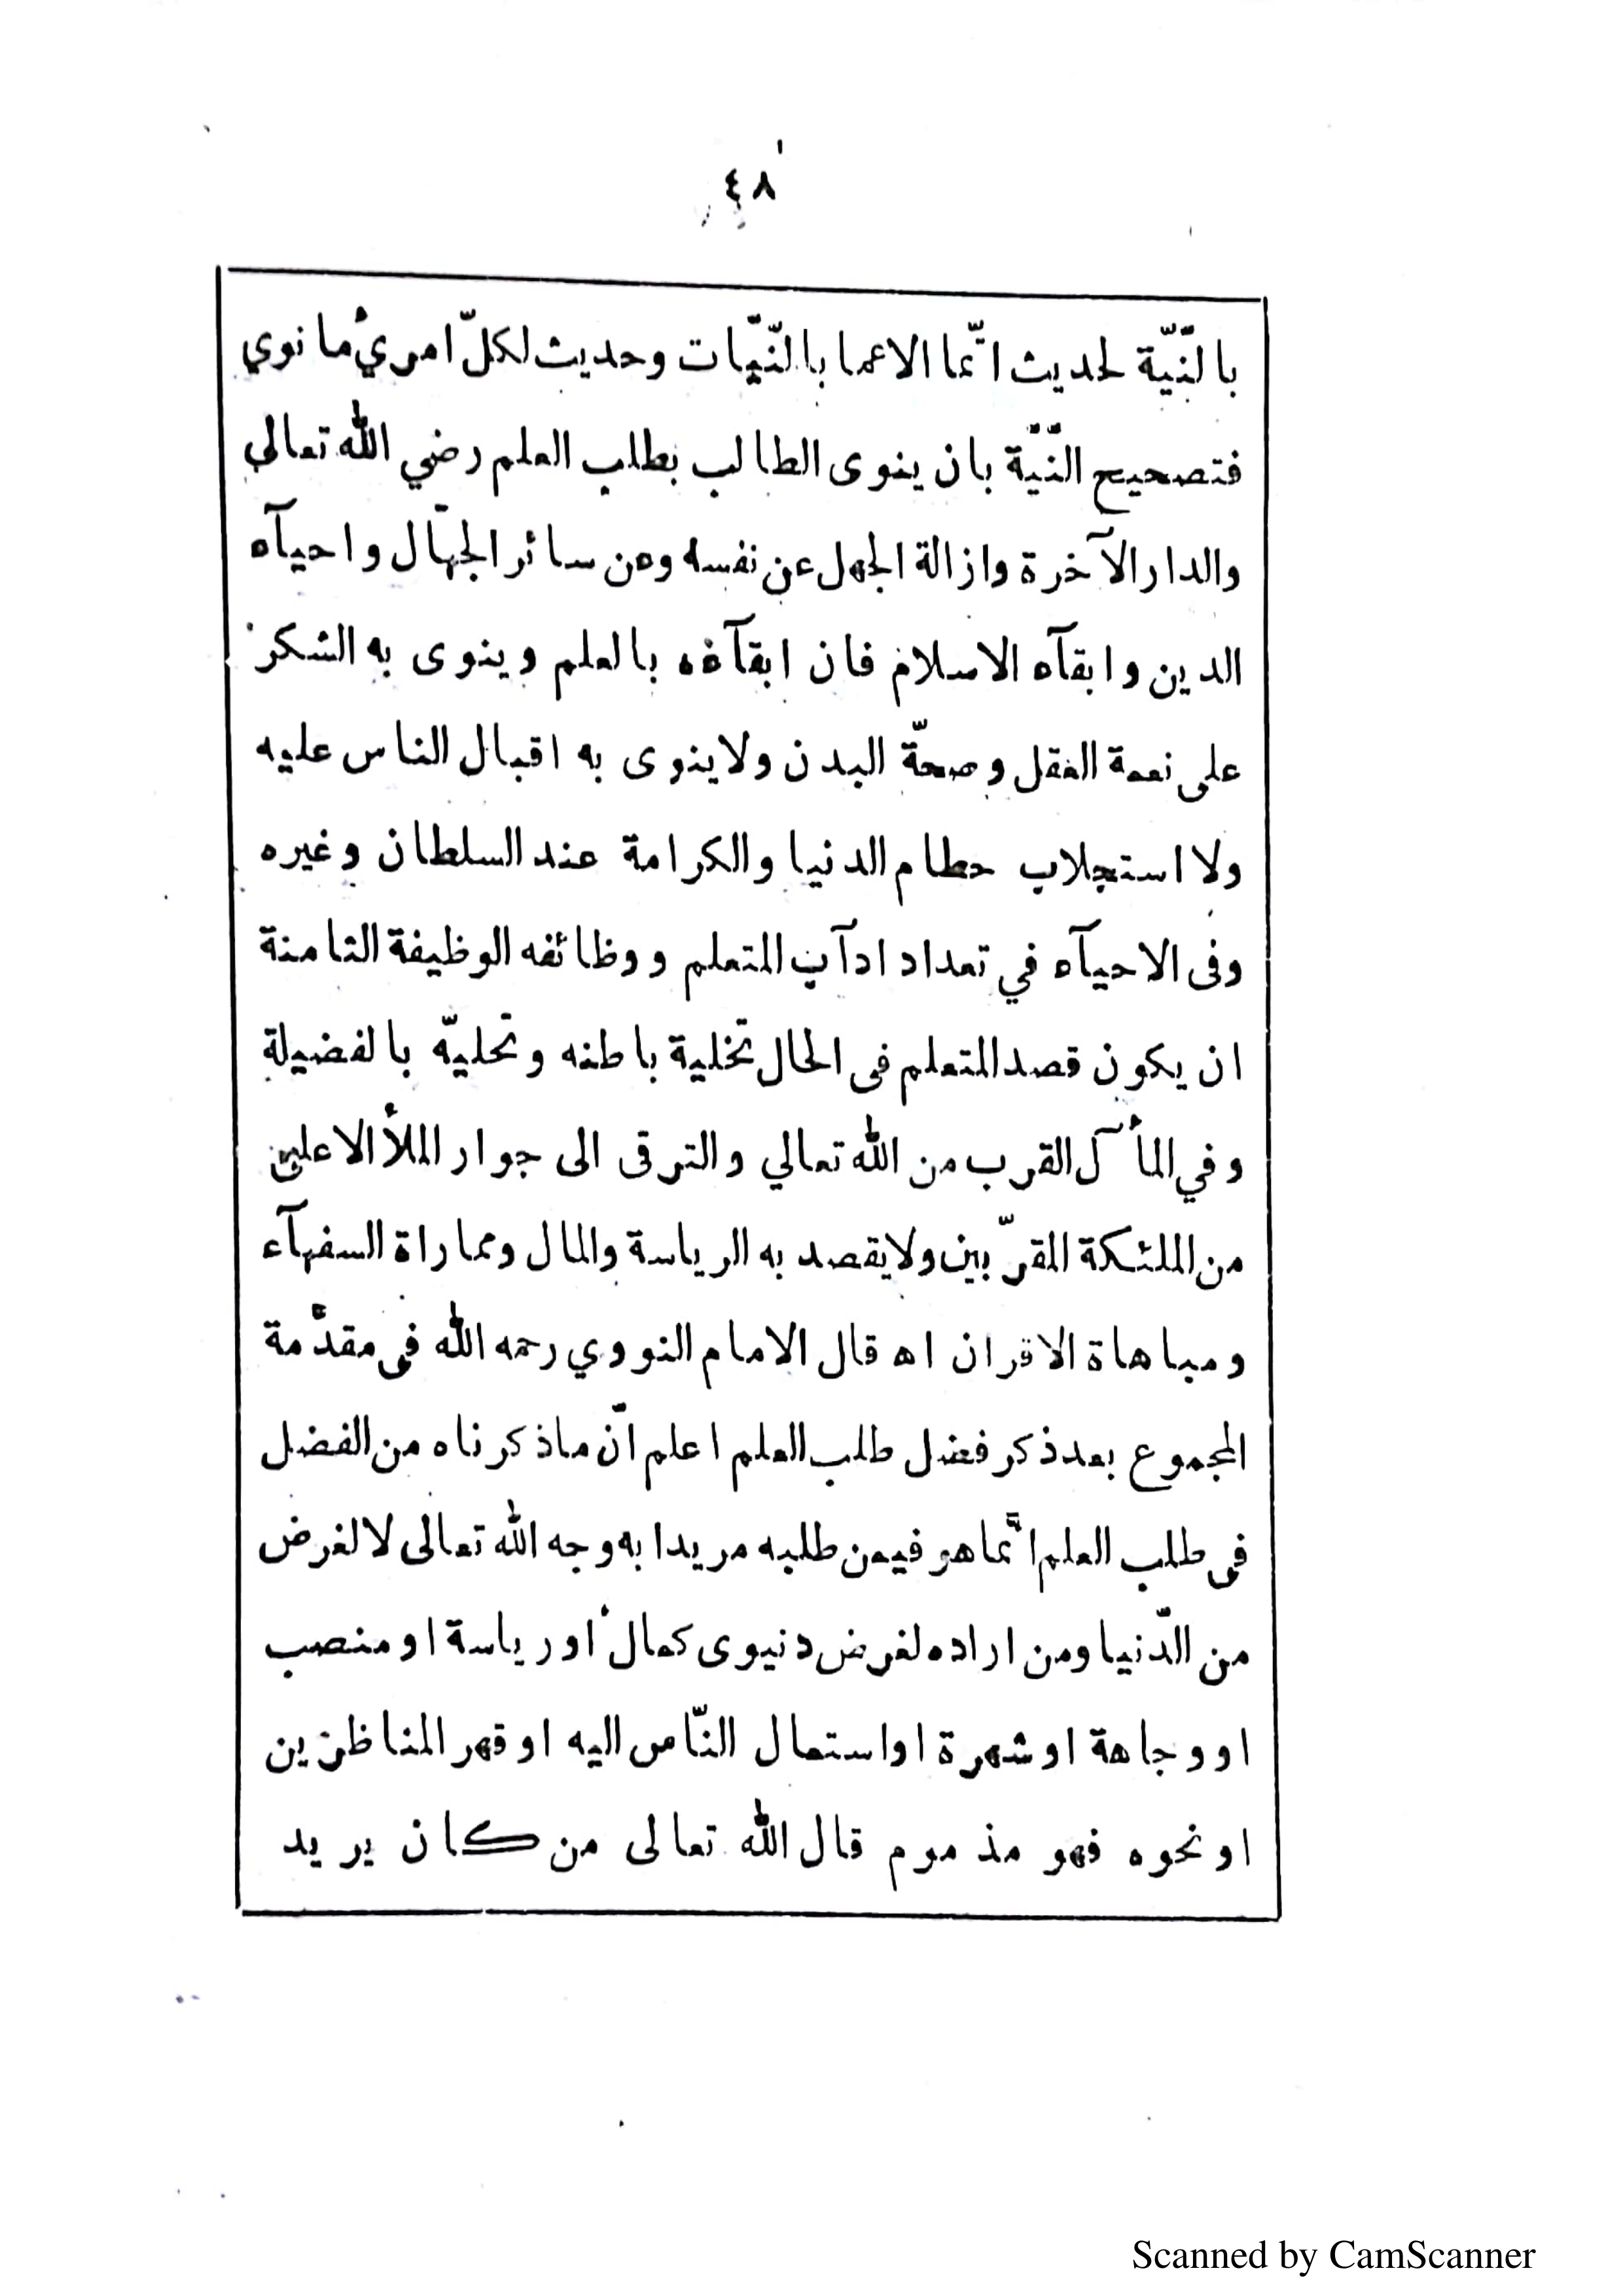 ٤٨
بالنّيّة لحديث انّما الاعما بالنّيّات وحديث لكلّ امرئ ما نوي
فتصحيح النّيّة بان ينوى الطالب بطلب العلم رضي الله تعالي
والدار الآخرة وازالة الجهل عن نفسه وعن سائر الجهّال واحيآء
الدين وابقآء الاسلام فان ابقآءه بالعلم وينوى به الشكر
على نعمة العقل وصحّة البدن ولاينوى به اقبال الناس عليه
ولا استجلاب حطام الدنيا والكرامة عند السلطان وغيره
وفى الاحيآء في تعداد ادآب المتعلم ووظائفه الوظيفة الثامنة
ان يكون قصد المتعلم فى الحال تخلية باطنه وتحليّه بالفضيلة
وفي المأآل القرب من الله تعالي والترقى الى جوار الملأ الاعلى
من الملئكة المقرّبين ولايقصد به الرياسة والمال ومماراة السفهآء
ومباهاة الاقران اه قال الامام النووي رحمه الله فى مقدّمة
المجموع بعد ذكر فضل طلب العلم اعلم انّ ماذكرناه من الفضل
فى طلب العلم انّما هو فيمن طلبه مريدا به وجه الله تعالى لا لغرض
من الدّنيا ومن اراده لغرض دنيوى كمال أو رياسة او منصب
او وجاهة او شهرة او استمال النّاس اليه او قهر المناظرين
او نحوه فهو مذموم قال الله تعالى من كان يريد
Scanned by CamScanner